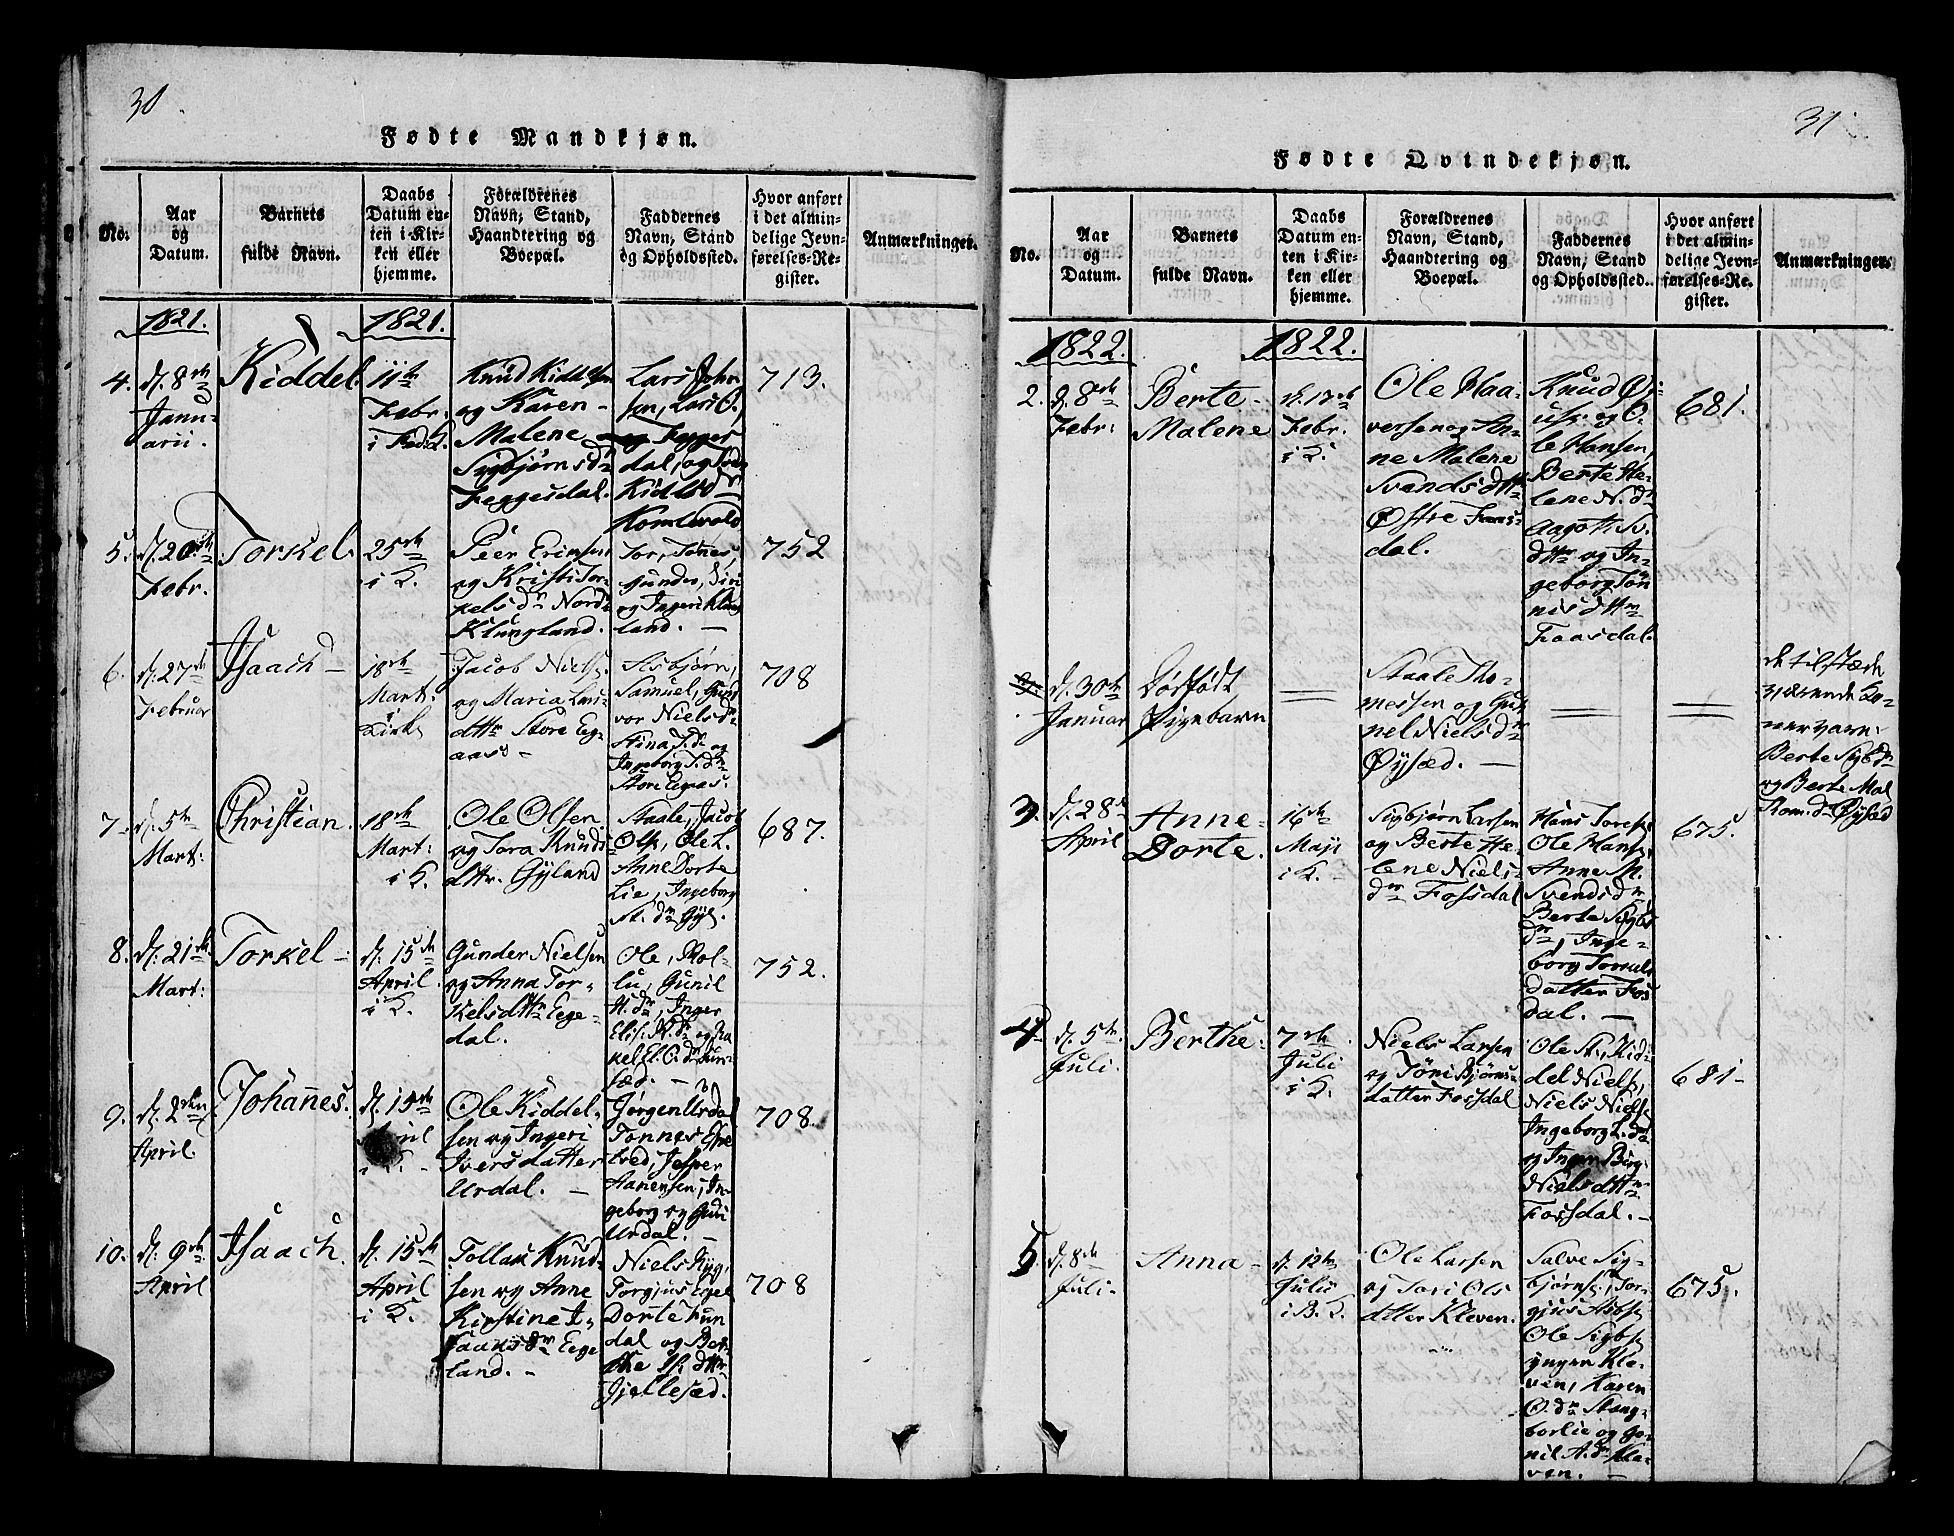 30
Fødte Mandkjøn.
No.
Aar
og
Datum.
Barnets
fulde Navn.
Daabs
Datum en-
ten i Kir-
ken eller
hjemme.
Forældrenes
Navn, Stand,
Haandtering og
Boepæl.
Faddernes
Navn, Stand
og Opholdssted.
Hvor anført
i det almin-
delige Jevn-
førelses-Re-
gister.
Anmærkninger.
1821.
1821.
4.
d. 8de
Janu-
arii.
Kiddel.
11te
Febr.
Knud Kiddelsen
og Karen
Malene
Sigbjørnsdr
Feggesdal.
Lars John-
sen, Lars O.
og Fegges
dal, og
713.
5.
d. 20de
Febr.
Torkel.
25de
i K.
Peer
og Kristi Tor-
kelsdr Nord-
Klungland.
Tor, Tønes,
Gunder, Siri
og Ingeri Klung
land.
752
6.
d. 27de
Februar
Isaach
18de
Mart.
i
Kirk
Jacob Niels.
og Maria Lars-
dttr Store Eeg-
aas
Asbjørn,
Samuel, Gun
vor Nielsdr
Stina T.dr og
Ingeborg T.dr
Store Egeaas.
708
7.
d. 5te
Mart:
Christian.
18de
Mart:
i K.
Ole Olsen
og Tora Knuds-
dttr. Gyland
Staale, Jacob
Ols., Ole L.
Anne Dorte
Lie, Ingeborg
St. dr Gyl.
687.
8.
d. 21de
Mart:
Torkel
d. 15de
April
i K.
Gunder Nielsen
og Anna Tor-
kelsdttr Eege-
dal.
Ole, Rol-
lu, Gunil
H.dr, Inger
Elis. N.dr og Ra
kel El. O.dr
sæd.
752.
9.
d. 2den
April.
Johannes.
d. 15de
April
i K.
Ole Kiddel-
sen og Ingeri
Iversdatter
Urdal.
Jørgen Urdal
Tønnes
Jesper
Aanensen, In-
geborg og Guri
Urdal.
708.
10.
d. 9de
April
Isaach.
d. 15de
April
i K.
Tollak Knud-
sen og Anne
Kirstine I-
saacsdr Eege
land.
Niels Ryg,
Torgius Egel
Dorte Fun
dal og Ber-
the
Gjellesæd.
708
31
Fødte Qvindekjøn.
No.
Aar
og
Datum.
Barnets
fulde Navn.
Daabs
Datum en-
ten i Kir-
ken eller
hjemme.
Forældrenes
Navn, Stand,
Haandtering og
Boepæl.
Faddernes
Navn, Stand
og Opholdssted.
Hvor anført
i det almin-
delige Jevn-
førelses-Re-
gister.
Anmærkninger.
1822.
1822.
2.
d. 8de
Febr:
Berte
Malene
Febr.
i K.
Ole Haa-
versen og An-
ne Malene
Svendsdttr
Østre Faas-
dal.
Knud
og O-
le Hansen,
Berte He-
lene N.dr
Aagot Sv.
dttr og In-
geborg Tøn
nisdttr
Faasdal.
681.
3.
d. 30te
Januar
Dødfødt
Pigebarn
Staale To-
messen og Gu-
nel Nielsdr
Øysæd.
de tilstæde
værende Ko-
ner vare:
Berte Sigb.dr
og Berte Mal
Øysæd
3.
d. 28de
April
Anne
Dorte.
16de
Maji
i K.
Sigbjørn Larsen
og Berte He-
lene Niels-
dr Fossdal
Hans Tores.
Ole Hans.
Anne M.
Svendsdr
Berte Sigbs
dr, Inge-
borg
datter Fos
dal.
675.
4
d. 5te
Juli.
Berthe.
7de
Juli
i K.
Niels Larsen
og Tøni Bjørns-
datter Fossdal
Ole St., Kid-
del Niels.,
Niels Niels.
Ingeborg L.dr
og
Nielsdttr
Fossdal.
681
5.
d. 8de
Juli.
Anna
d. 12te
Julii
i B. K.
Ole Larsen
og Tori Ols
datter Kleven.
Salve Sig-
bjørns., Tor-
gius Asbs.
Ole Sigbs.
yngre Kle-
ven, Karen
O.dr Stang-
borlie og Gu-
nil A.dr Kle-
ven.
675.